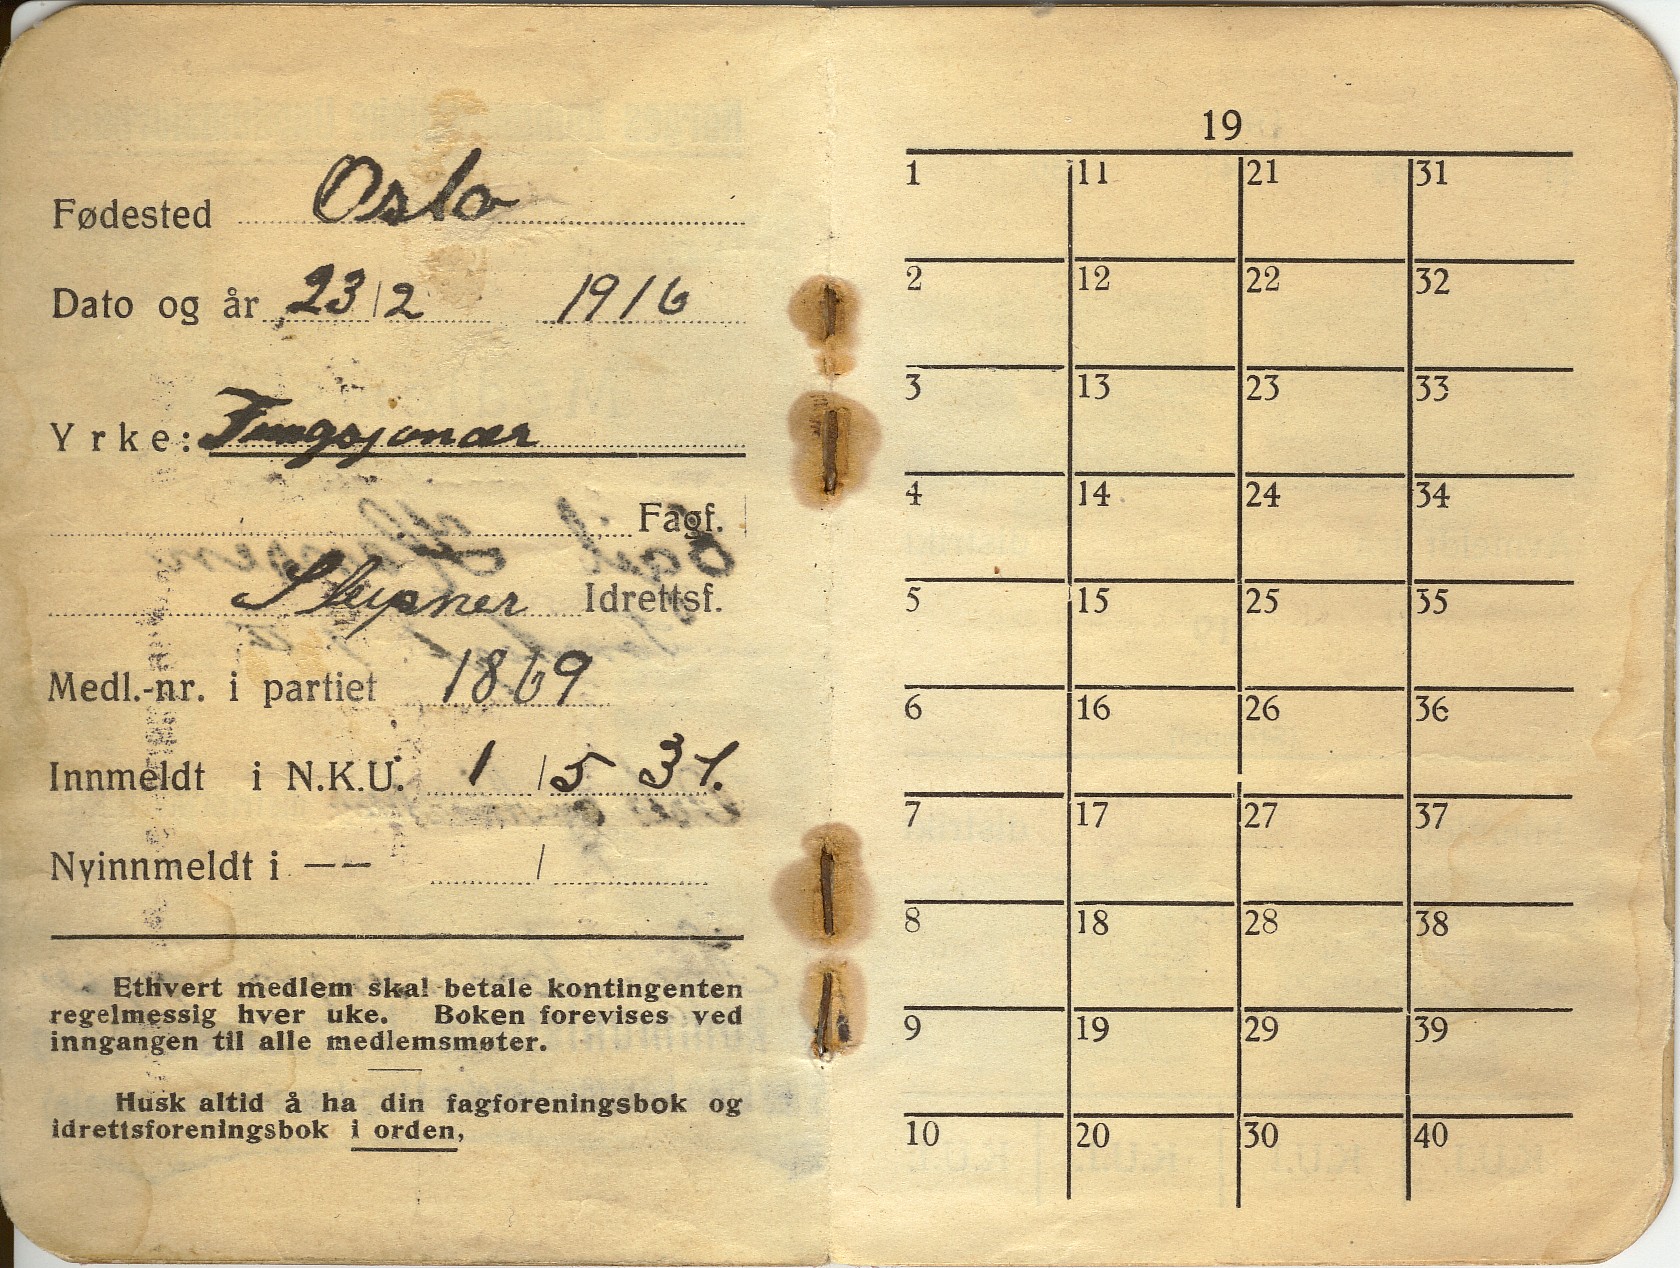 Fødested Oslo
Dato og år 23/2 1916
Yrke: Fungsjonær
Fagf.
Sleipner Idrettsf.
Medl.-nr. i partiet 1869
Innmeldt i N.K.U. 1 / 5 31.
Nyinnmeldt i —— /
Ethvert medlem skal betale kontingenten
regelmessig hver uke. Boken forevises ved
inngangen til alle medlemsmøter.
Husk altid å ha din fagforeningsbok og
idrettsforeningsbok i orden,
19
1 11 21 31
2 12 22 32
3 13 23 33
4 14 24 34
5 15 25 35
6 16 26 36
7 17 27 37
8 18 28 38
9 19 29 39
10 20 30 40